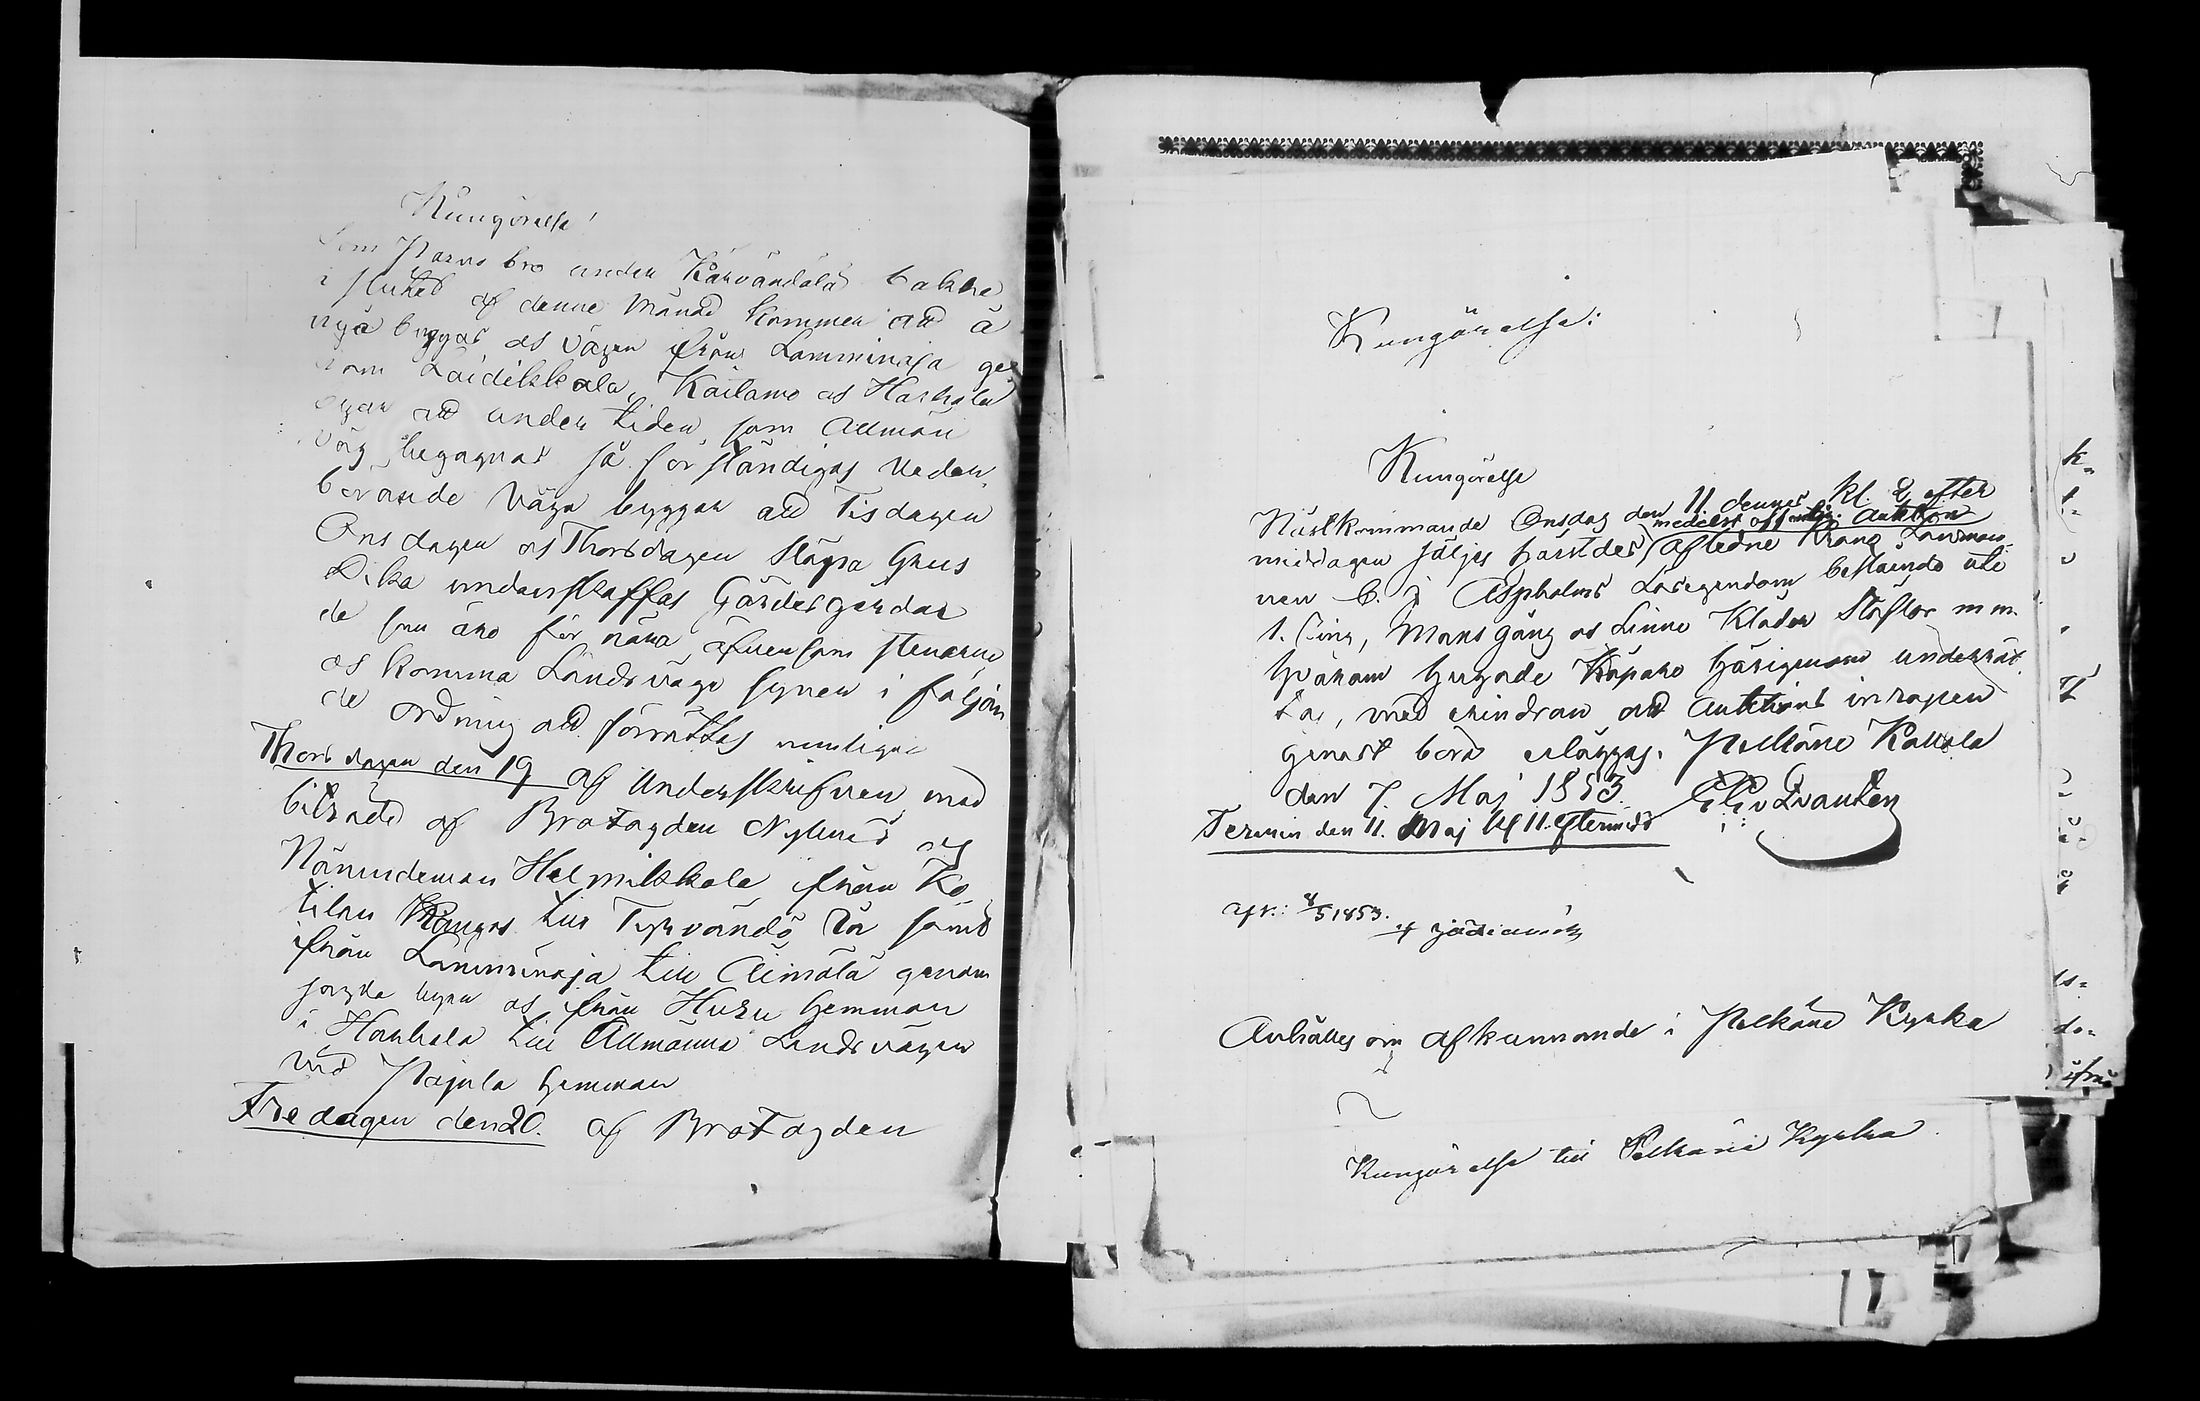 Kungörelse!
Som Parus bro under Kärvändälä backe
i slutet af denne Månad kommer att å
nyo byggas os Vägen ifrån Lamminraja ge-
nom Laidikkala, Kailamo os Harhala
byar att under tiden, som Allmän
Väg begagnas så förständigas veder-
börande Väga byggar att Tisdagen
Onsdagen os Thorsdagen släpa Grus
Dika undanskaffas Gärdesgårdar
de som äro för nära, äfvensom stenarne
os komma Landsväga synen i följan
de ordning att förrättas nemligen
Thorsdagen den 19 af Underskrifven med
biträde af Brofogden Nylund os
Nämndeman Helmikkala ifrån Ko
tilan Kangas till Tyrvändö rå samt
ifrån Lamminraja till Äimälä genom
sagda byar os ifrån Huru hemman
i Harhala till Allmänna Landsvägen
vid Pajula hemman
Fredagen den 20. af Brofogden
Kungörelse:
Kungörelse
Nästkommande Onsdag den 11 dennes kl. 2 efter
medelst offentlig Auktion
middagen säljes härstädes afledne Krono Länsman-
nen C. J. Aspholms Lösegendom bestående uti
1. Ring, Mans gång os Linne Kläder Stöflor m m.
hvarom hugade Köpare härigenom underrät
tas, med erindran att Auktions inropen
genast böra erläggas. Pelkäne Kallola
den 7. Maj 1853.
Termin den 11. Maj kl 11. efterm
afk.: 8/5 1853.
af
Anhålles om afkunnande i Pelkäne Kyrka
Kungörelse till Pelkäne Kyrka.